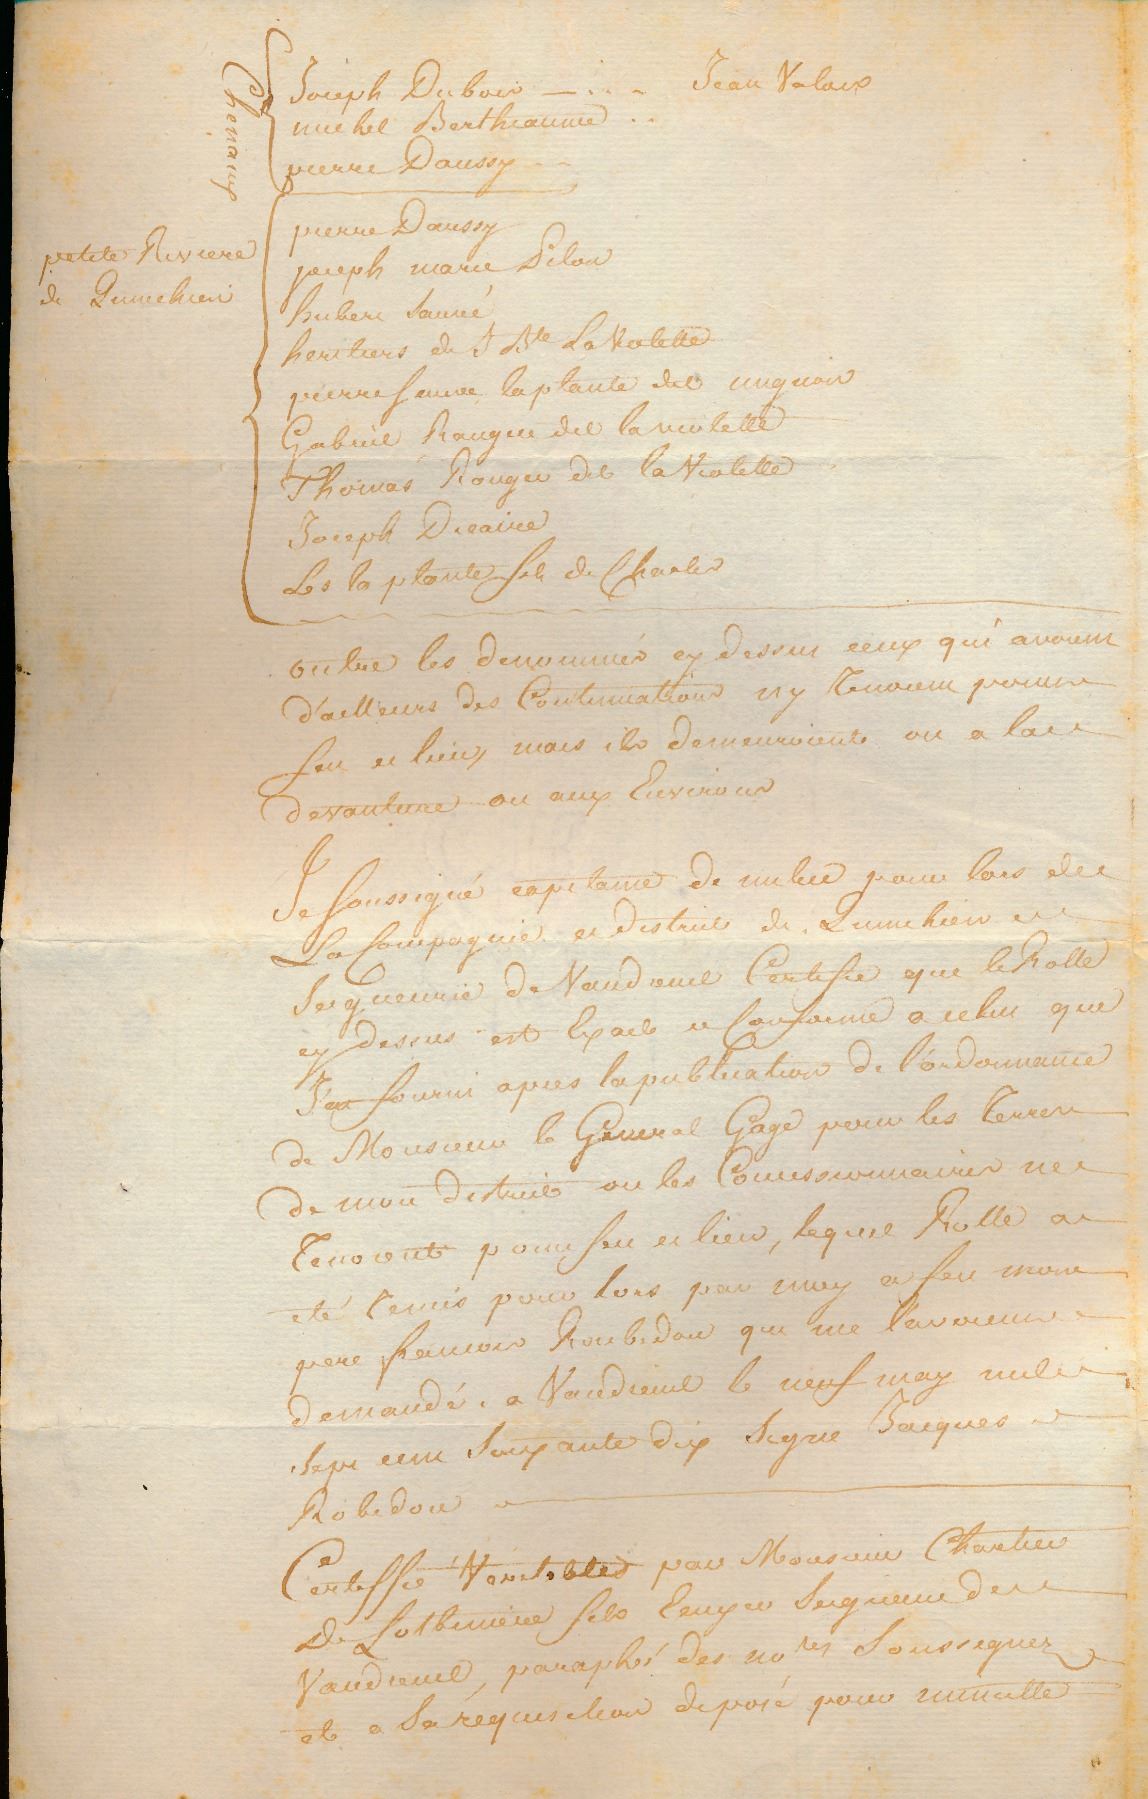 Chenaux
Joseph Dubois — . . . Jean Valoix
michel Berthiaume . .
pierre Daussy - -
petite Riviere
de Quinchien
pierre Daussy
joseph marie Pilon
huber Sauvé
heritiers de J Bte LaViolette
pierre Sauvé laplante dit
Gabriel Rangée dit laviolette
Thomas Rouger dit laViolette
Joseph Dicaire
Les la plante fils de Charles
outre les denommés cy dessus ceux qui avoient
d'ailleurs des Continuations ny Tenoient point
feu et lieu, mais ils demeuroient ou a la
devanture ou aux Environs
Je soussigné capitaine de milice pour lors de
La Compagnie et district de Quinchien
Seigneurie de Vaudreuil Certifie que le Rolle
cy dessus est Exact et Conforme a celui que
J'ai fourni apres la publication de l'ordonnance
de Monsieur le General Gage pour les Terres
de mon district ou les Concessionnaires ne
Tenoient point feu et lieu, lequel Rolle a
eté remis pour lors par moy a feu mon
pere francois Roubidou qui me l'avoient
demandé. a Vaudreuil le neuf may mil
sept cent soixante dix Signé Jacques
Robidou
Certiffié Véritables par Monsieur Chartier
De Lotbiniere fils Ecuyer Seigneur de
Vaudreuil, paraphé des nores Soussignez
et a Sa requisition deposé pour minutte